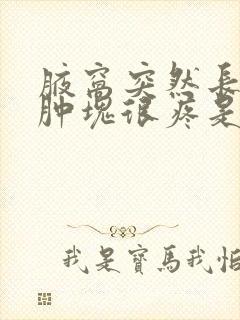 腋窝突然長
肿塊很疼是
我是寶馬我怕